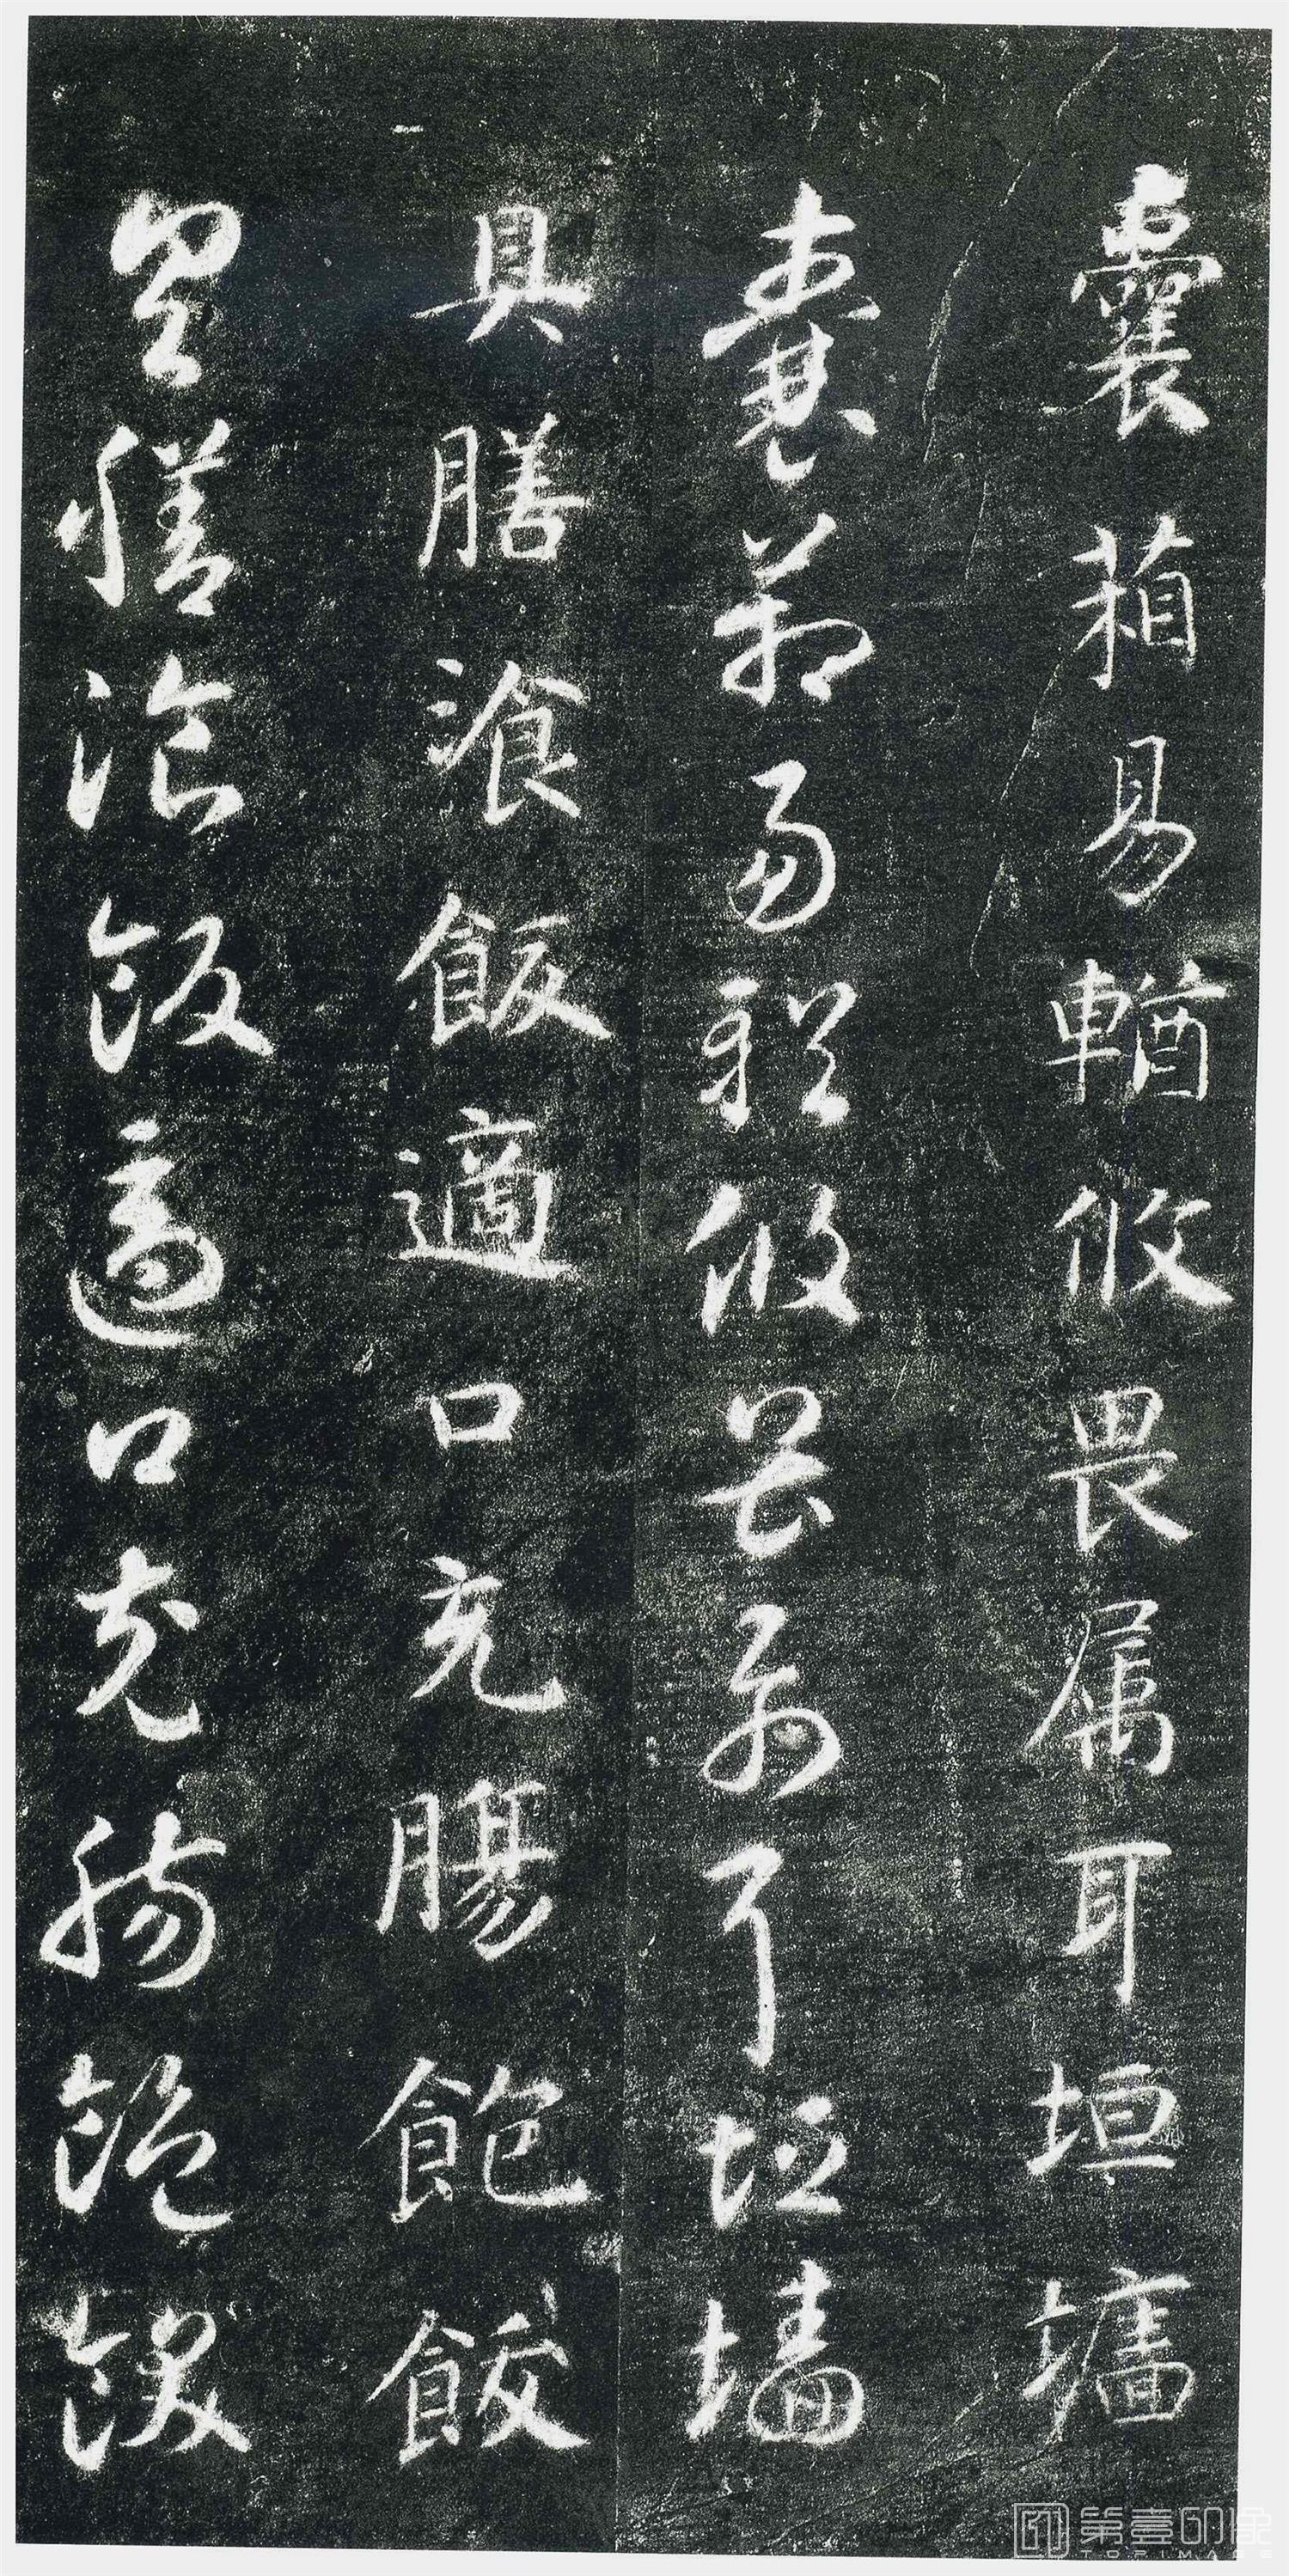 囊葙易輶攸畏属耳垣墻
囊葙易輶攸畏属耳垣墻
具膳飡飯適口充腸飽飫
具膳飡飯適口充腸飽飫
第壹印像
TOPIMAGE